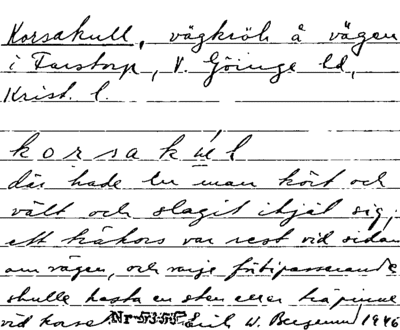 Korsakull, vägkrök å vägen
i Farstorp, V. Göinge hd,
Krist. l.
korsakul
där hade en man kört och
vält och slagit ihjäl sig;
ett träkors var rest vid sidan
om vägen, och varje förbipasserande
skulle kasta en sten eller träpinne
vid korset. Nr 5355 W. 1946